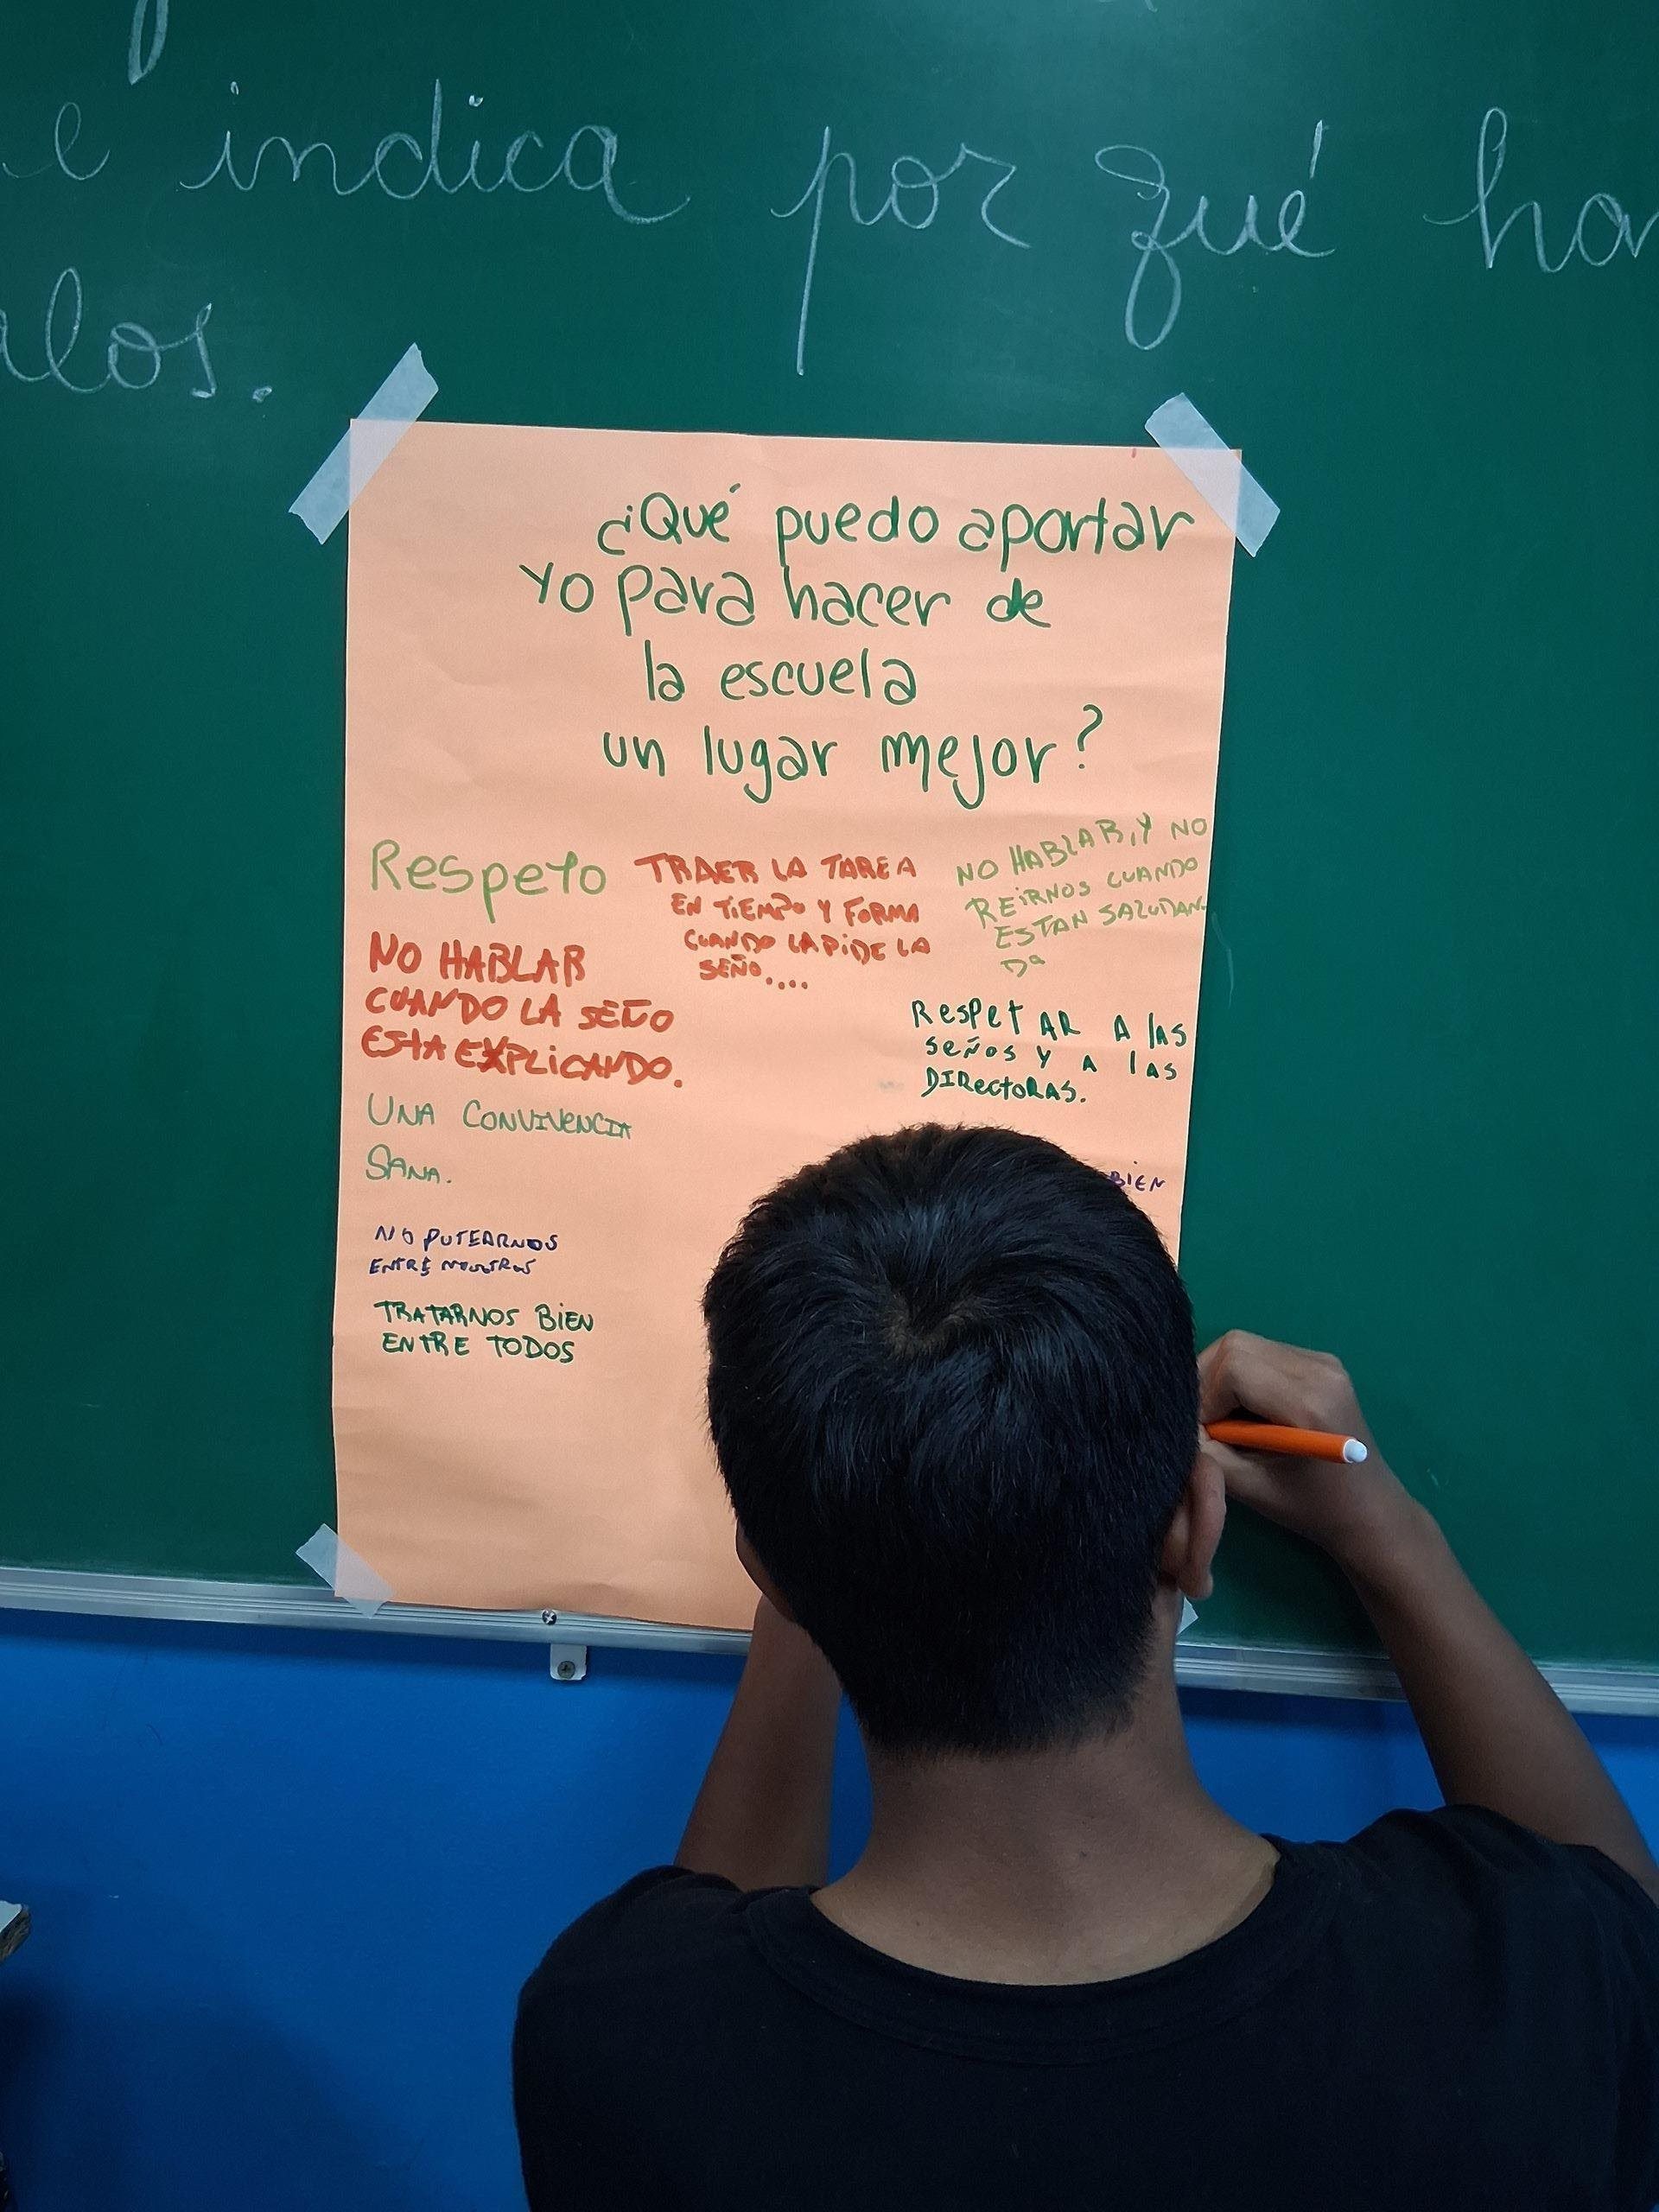 e indica por qué
alos.
¿Qué puedo aportar
yo para hacer de
la escuela
un lugar mejor?
Respeto
NO HABLAR
CUANDO LA SEÑO
ESTA EXPLICANDO.
UNA CONVIVENCIA
SANA.
NO PUTEARNOS
ENTRE NOSOTROS
TRATARNOS BIEN
ENTRE TODOS
TRAER LA TAREA
EN TIEMPO Y FORMA
CUANDO LA PIDE LA
SEÑO....
NO HABLAR, Y NO
REIRNOS CUANDO
ESTAN SALUDAN-
Do
RespetAR A lAS
señoS y A lAS
DIRectoRAS.
BIEN